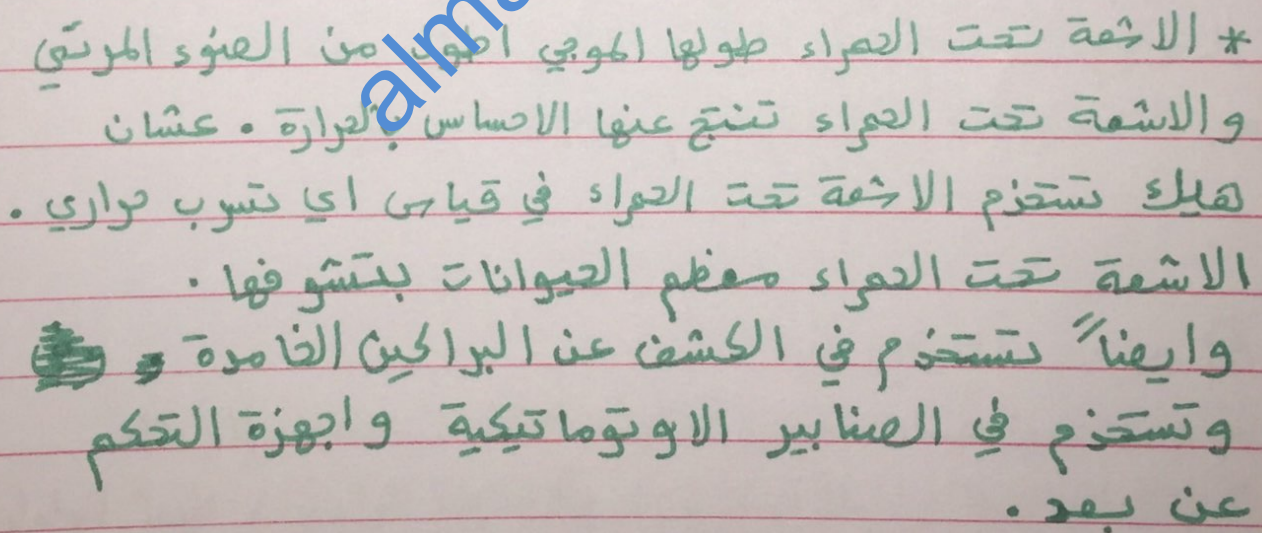 * الاشعة تحت الحمراء طولها الموجي اطول من الضوء المرئي
والاشعة تحت الحمراء تنتج عنها الاحساس بالحرارة . عشان
هيك تستخدم الاشعة تحت الحمراء في قياس اي تسرب حراري .
الاشعة تحت الحمراء معظم الحيوانات بتشوفها .
وايضاً تستخدم في الكشف عن البراكين الخامدة ,
وتستخدم في الصنابير الاوتوماتيكية واجهزة التحكم
عن بعد .
alma